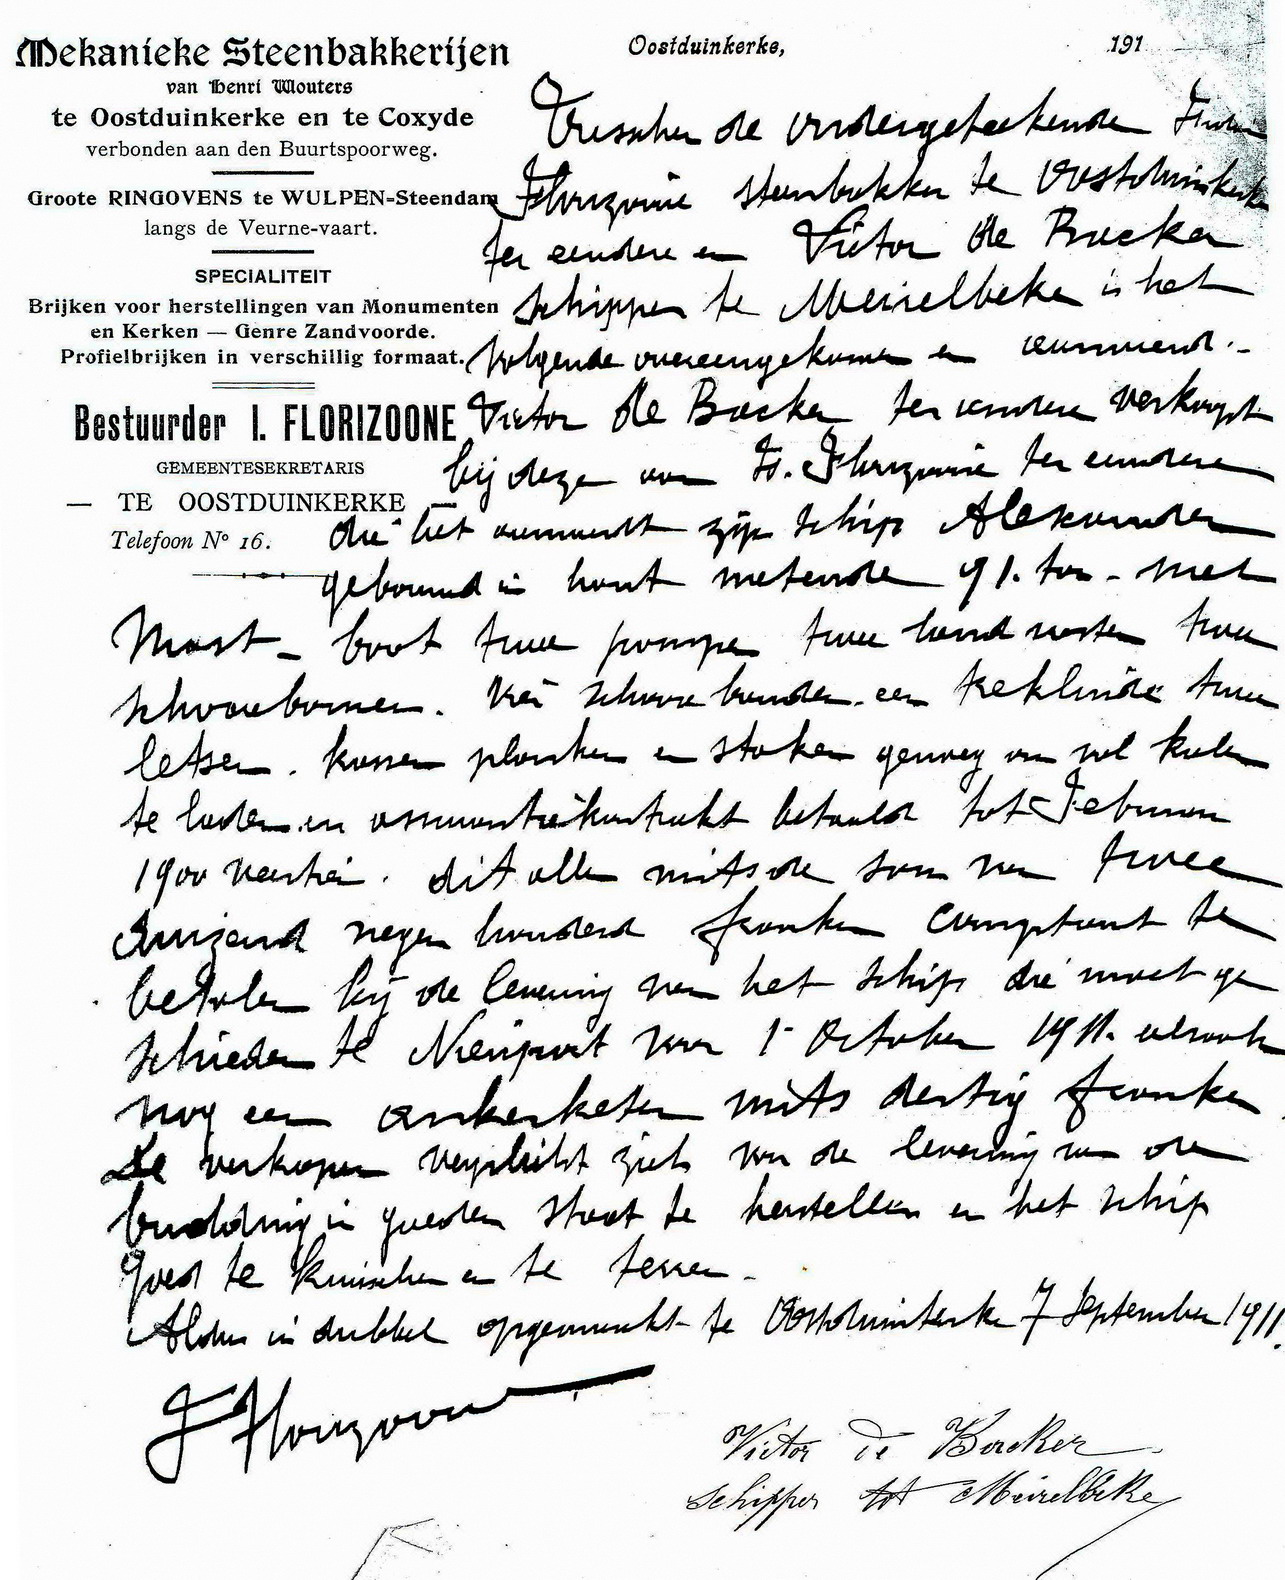 Mekanieke Steenbakkerijen
van Henri Wouters
te Oostduinkerke en te Coxyde
verbonden aan den Buurtspoorweg.
Groote RINGOVENS te WULPEN-Steendam
langs de Veurne-vaart.
SPECIALITEIT
Brijken voor herstellingen van Monumenten
en Kerken — Genre Zandvoorde.
Profielbrijken in verschillig formaat.
Bestuurder I. FLORIZOONE
GEMEENTESEKRETARIS
— TE OOSTDUINKERKE —
Telefoon No 16.
Oostduinkerke, 191
Tusschen de ondergeteekende
Florizoone steenbakker te Oostduinkerke
ter eendere en Victor de Backer
schipper te Meirelbeke is het
volgende overeengekomen en aanvaard.-
Victor de Backer ter andere verkoopt
bij deze aan Is. Florizoone ter eendere
die het aanvaardt zijn schip Alexander
gebouwd in hout metende 91. ton - met
Mast - boot twee pompen twee twee
schoorboomen. een treklinde twee
letsen. planken en staken genoeg om vol kolen
te laden en assurantiekontrakt betaald tot Februari
1900 veertien. dit alles mits de som van twee
duizend negen honderd franken comptant te
betalen bij de levering van het schip die moet ge
schieden te Nieuport voor 1r October 1911. alsook
nog een ankerketen mits dertig franken.
De verkooper verplicht zich voor de levering van de
buddering in goeden staat te herstellen en het schip
goed te kuischen en te teeren -
Aldus in dubbel opgemaakt te Oostduinkerke 7 September 1911.
I Florizoone
Victor de Backer
schipper tot Meirelbeke